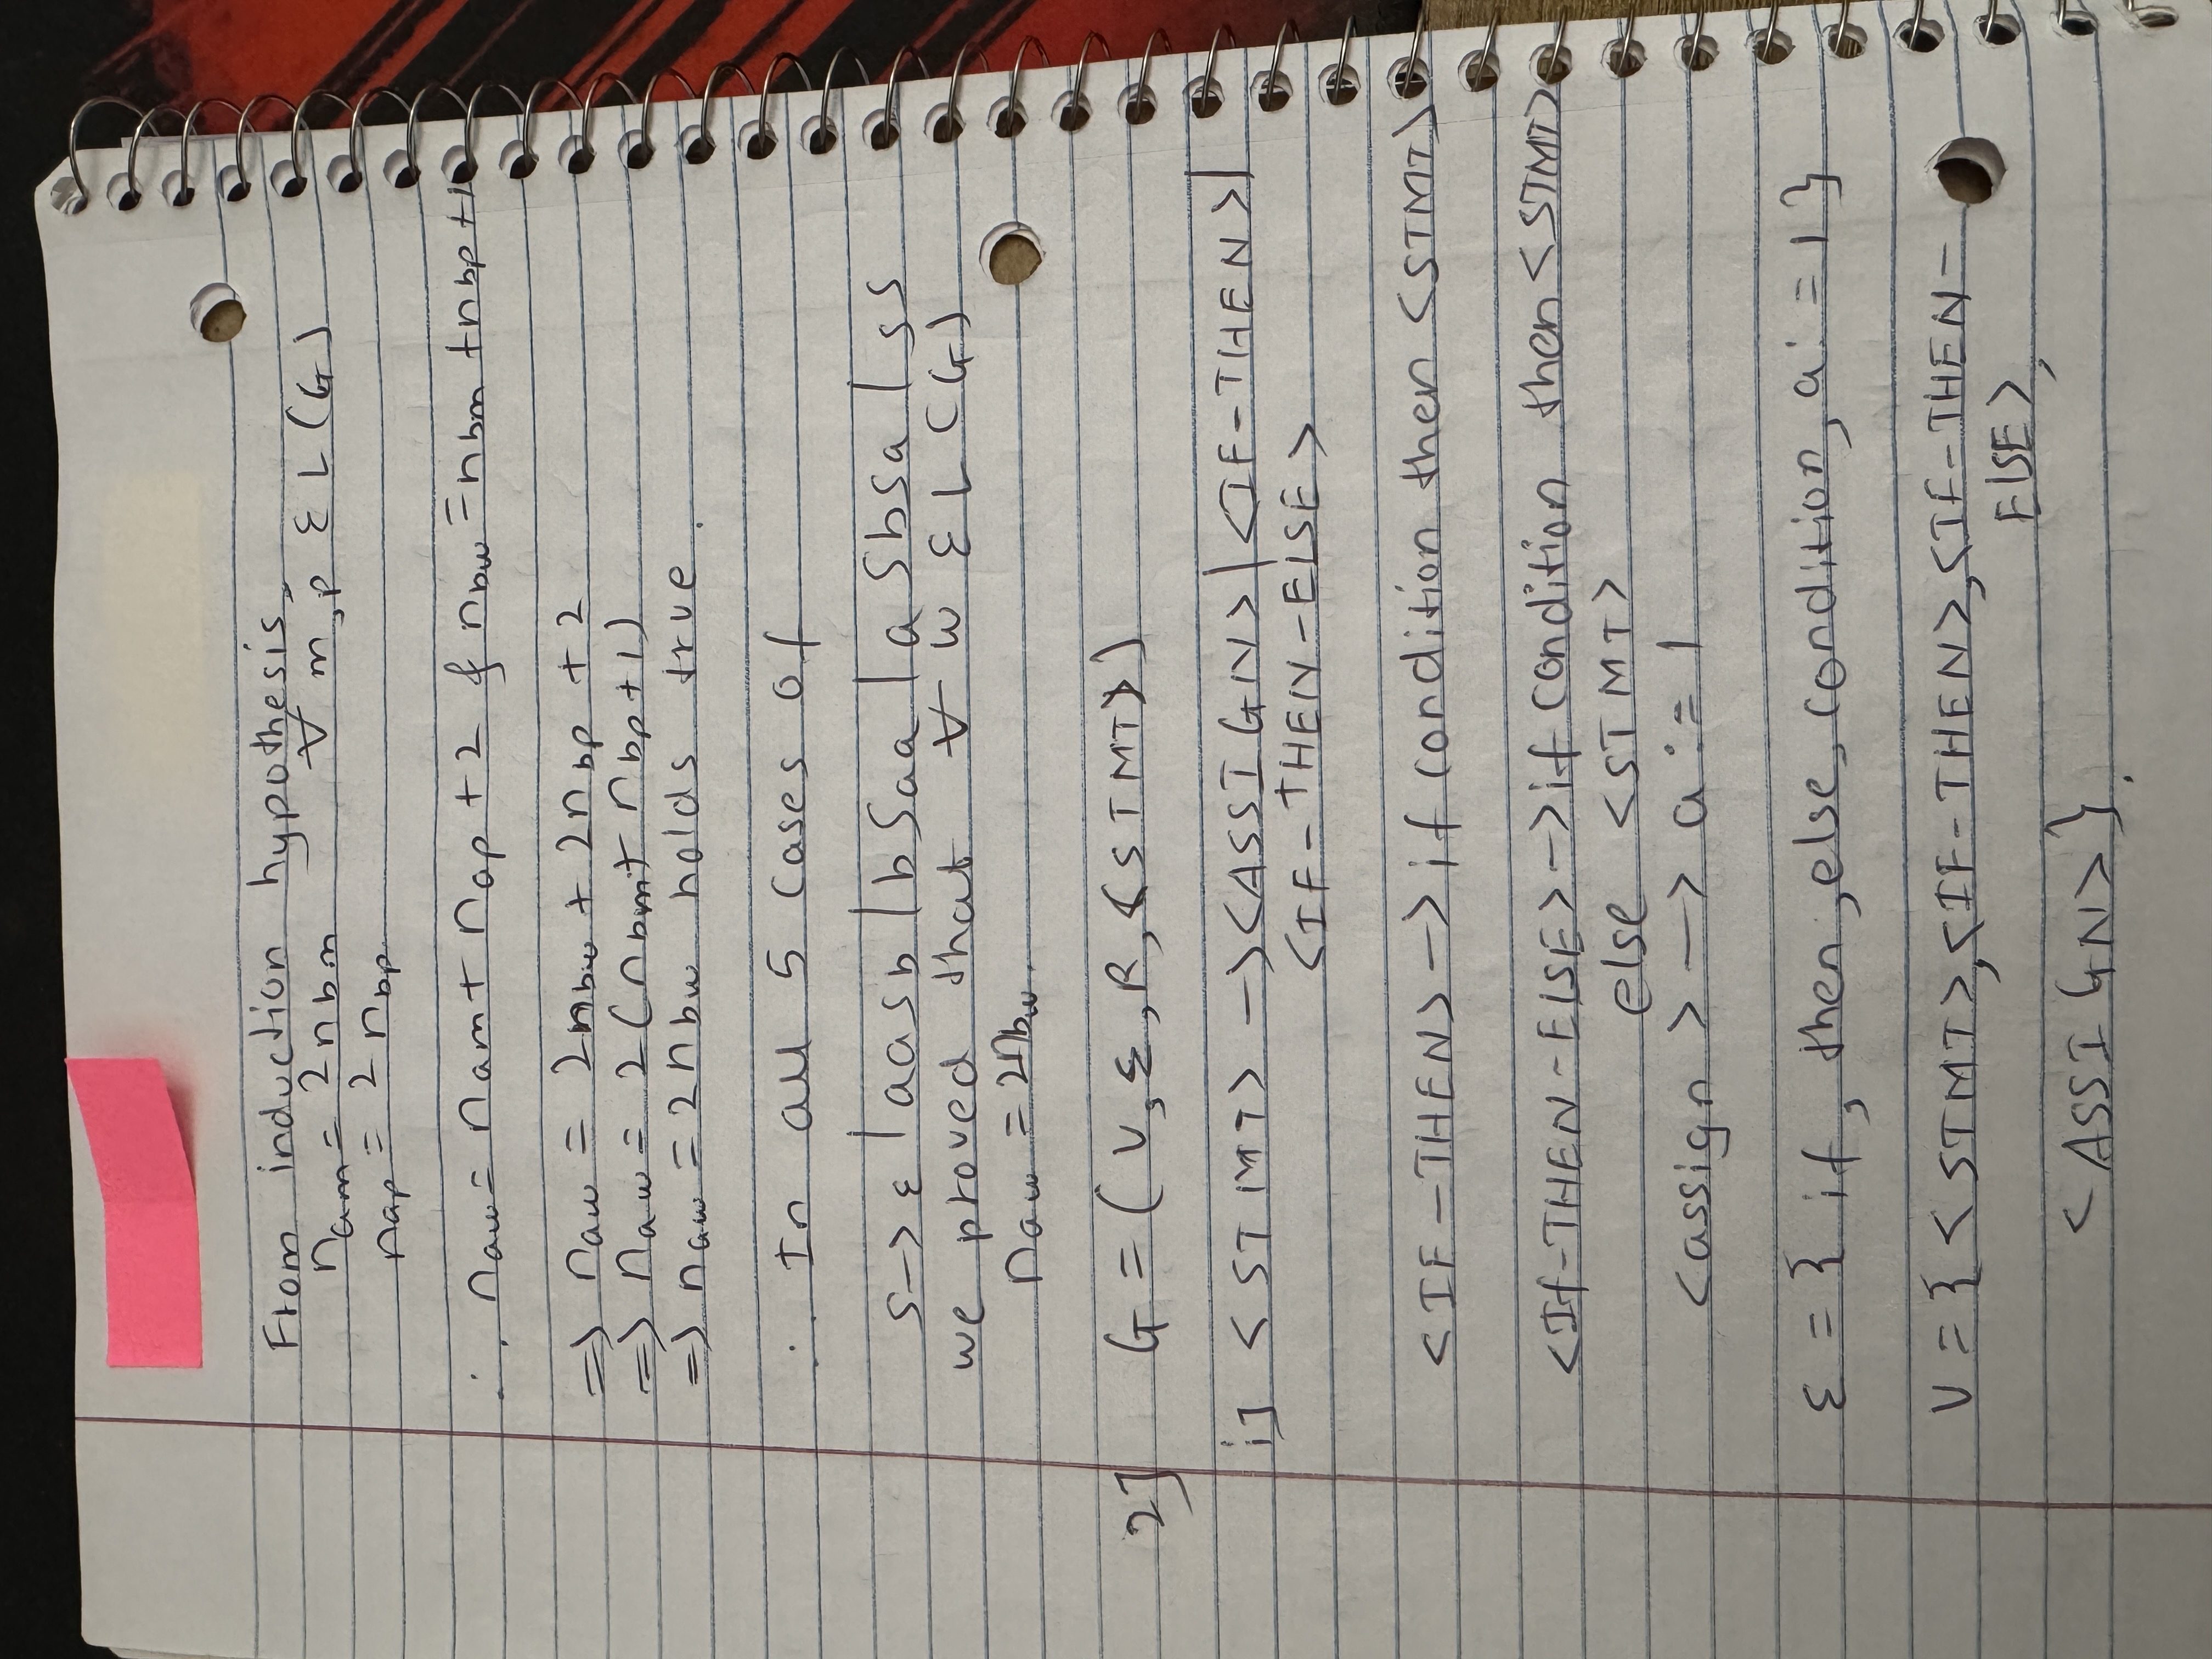 From induction hypothesis,
nam = 2nbm ∀ m,p Ɛ L(G)
nap = 2nbp
∴ naw = nam + nap + 2 & nbw = nbm + nbp + 1
=> naw = 2nbw + 2nbp + 2
=> naw = 2(nbm + nbp + 1)
=> naw = 2nbw holds true.
∴ In all 5 cases of
S -> ε | aaSb | bSaa | aSbSa | SS
we proved that ∀ w Ɛ L(G)
naw = 2nbw.
2] G = (V, Ɛ, R, <STMT>)
i] <STMT> -> <ASSIGN> | <IF-THEN> |
<IF-THEN-ELSE>
<IF-THEN> -> if condition then <STMT>
<If-THEN-ELSE> -> if condition then <STMT>
else <STMT>
<assign> -> a := 1
Ɛ = { if, then, else, condition, a := 1 }
V = { <STMT>, <IF-THEN>, <IF-THEN-
ELSE>,
<ASSIGN> }.